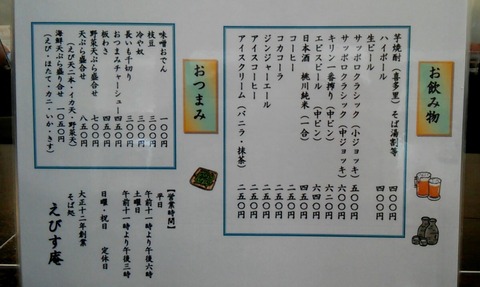 お飲み物
芋焼酎(喜多里)そば湯割等 四〇〇円
ハイボール 四〇〇円
生ビール
サッポロクラシック(小ジョッキ) 四〇〇円
サッポロクラシック(中ジョッキ) 五〇〇円
キリン一番搾り(中ビン) 六二〇円
エビスビール(中ビン) 六四〇円
日本酒 桃川純米(一合) 五〇〇円
コーヒー 四五〇円
コカコーラ 二五〇円
ジンジャーエール 二五〇円
アイスコーヒー 二五〇円
アイスクリーム(バニラ・抹茶) 二五〇円
おつまみ
味噌おでん 一〇〇円
枝豆 三〇〇円
冷や奴
長いも千切り
おつまみチャーシュー 四五〇円
板わさ 四五〇円
野菜天ぷら盛合せ 七〇〇円
天ぷら盛合せ 八五〇円
(えび天二本・イカ天・野菜天)
海鮮天ぷら盛り合せ 一〇五〇円
(えび・ほたて・カニ・いか・きす)
【営業時間】
平日
午前十一時より午後六時
土曜日
午前十一時より午後三時
日曜・祝日 定休日
大正十二年創業
そば処
えびす庵